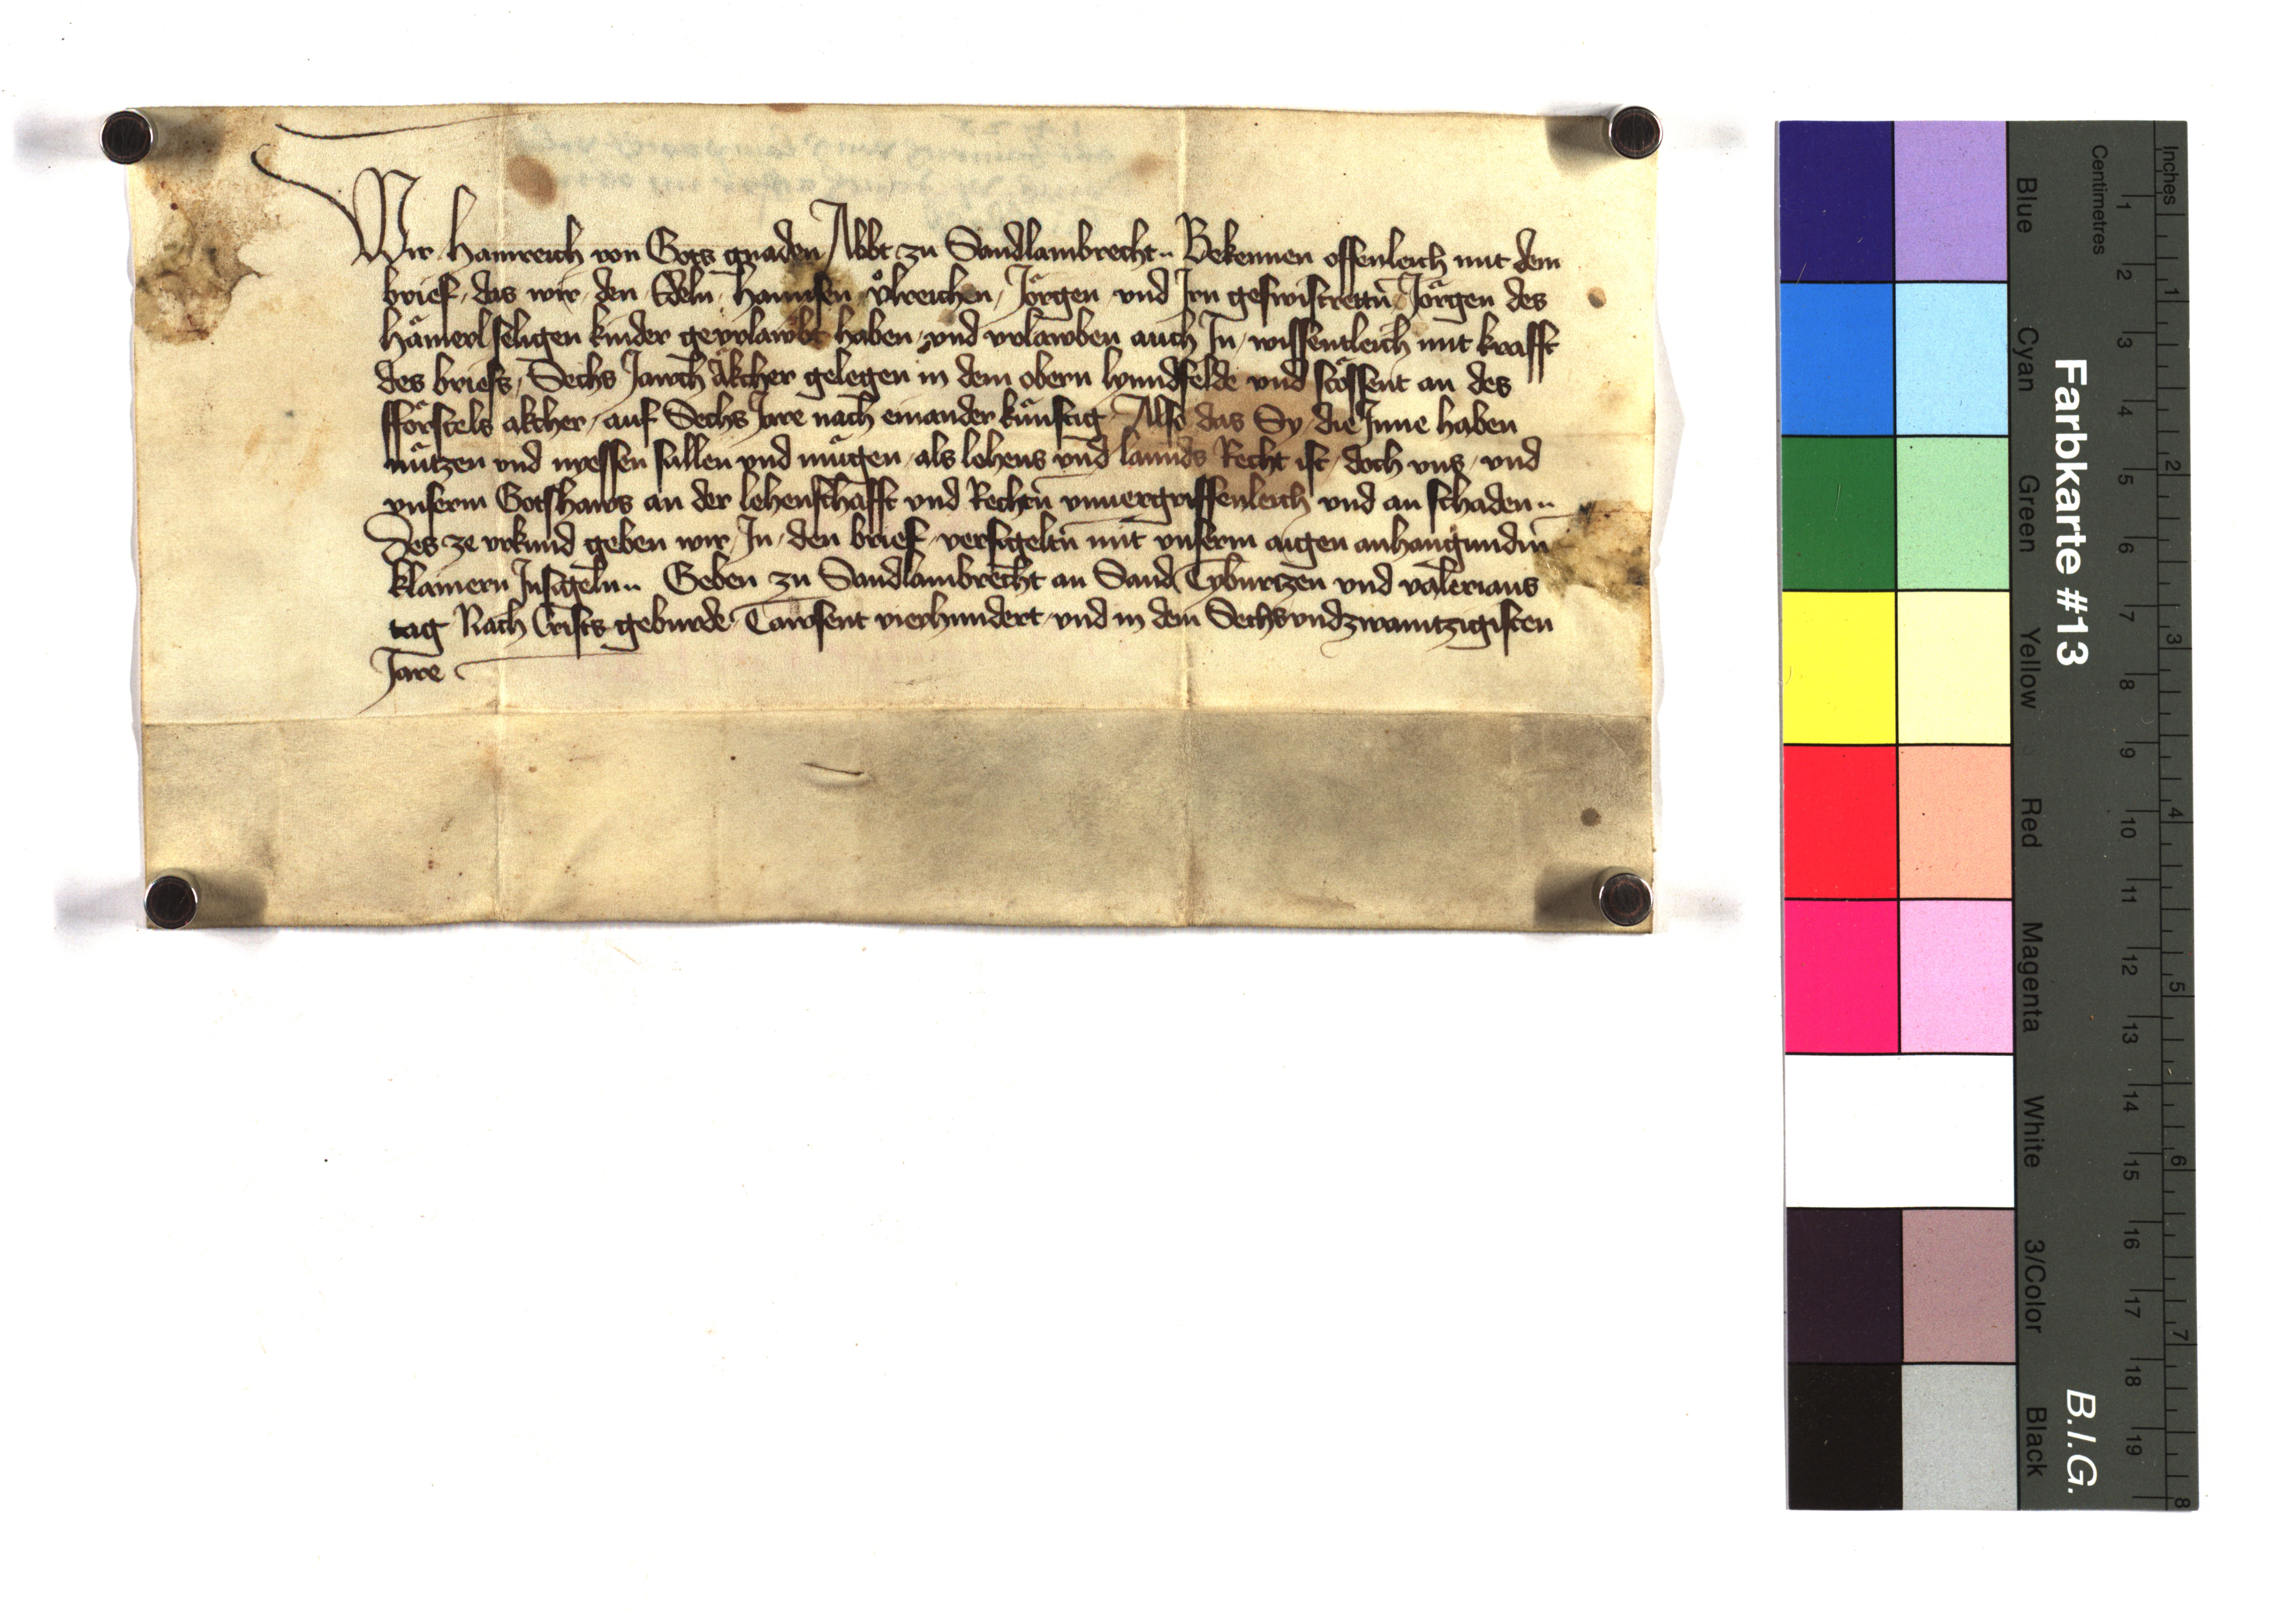 Wir Hainreich von Gots gnaden Abbt zu Sandlambrecht Bekennen offenleich mit dem
brief das wir den Edeln Hannsen Vlreichen Jörgen vnd Irn geswistrettn̄ Jörgen des
Hämerl seligen kinder gevrlawbt haben vnd vrlawben auch In wissentleich mit krafft
des briefs Sechs Jawch äkcher gelegen in dem obern lynndfelde vnd stössent an des
fförstels akcher auf Sechs Jare nach einander künftig Also das Sy die Inne haben
nützen vnd nyessen sullen vnd mügen als lehens vnd lannds Recht ist doch vns vnd
vnserm Gotshaws an der lehenschafft vnd Rechtn̄ vnuergriffenleich vnd an schaden
Des ze vrkund geben wir In den brief versigeltn̄ mit vnserm aigen anhangundm̄
klainern Insigeln Geben zu Sandlambrecht an Sand Tyburtzen vnd valerians
tag Nach Crists geburde Tawsent vierhundert vnd in dem Sechsvndzwaintzigisten
Jare
Farbkarte #13
B.I.G.
Centimetres
Inches
1 2 3 4 5 6 7 8 9 10 11 12 13 14 15 16 17 18 19
1 2 3 4 5 6 7 8
Blue Cyan Green Yellow Red Magenta White 3/Color Black